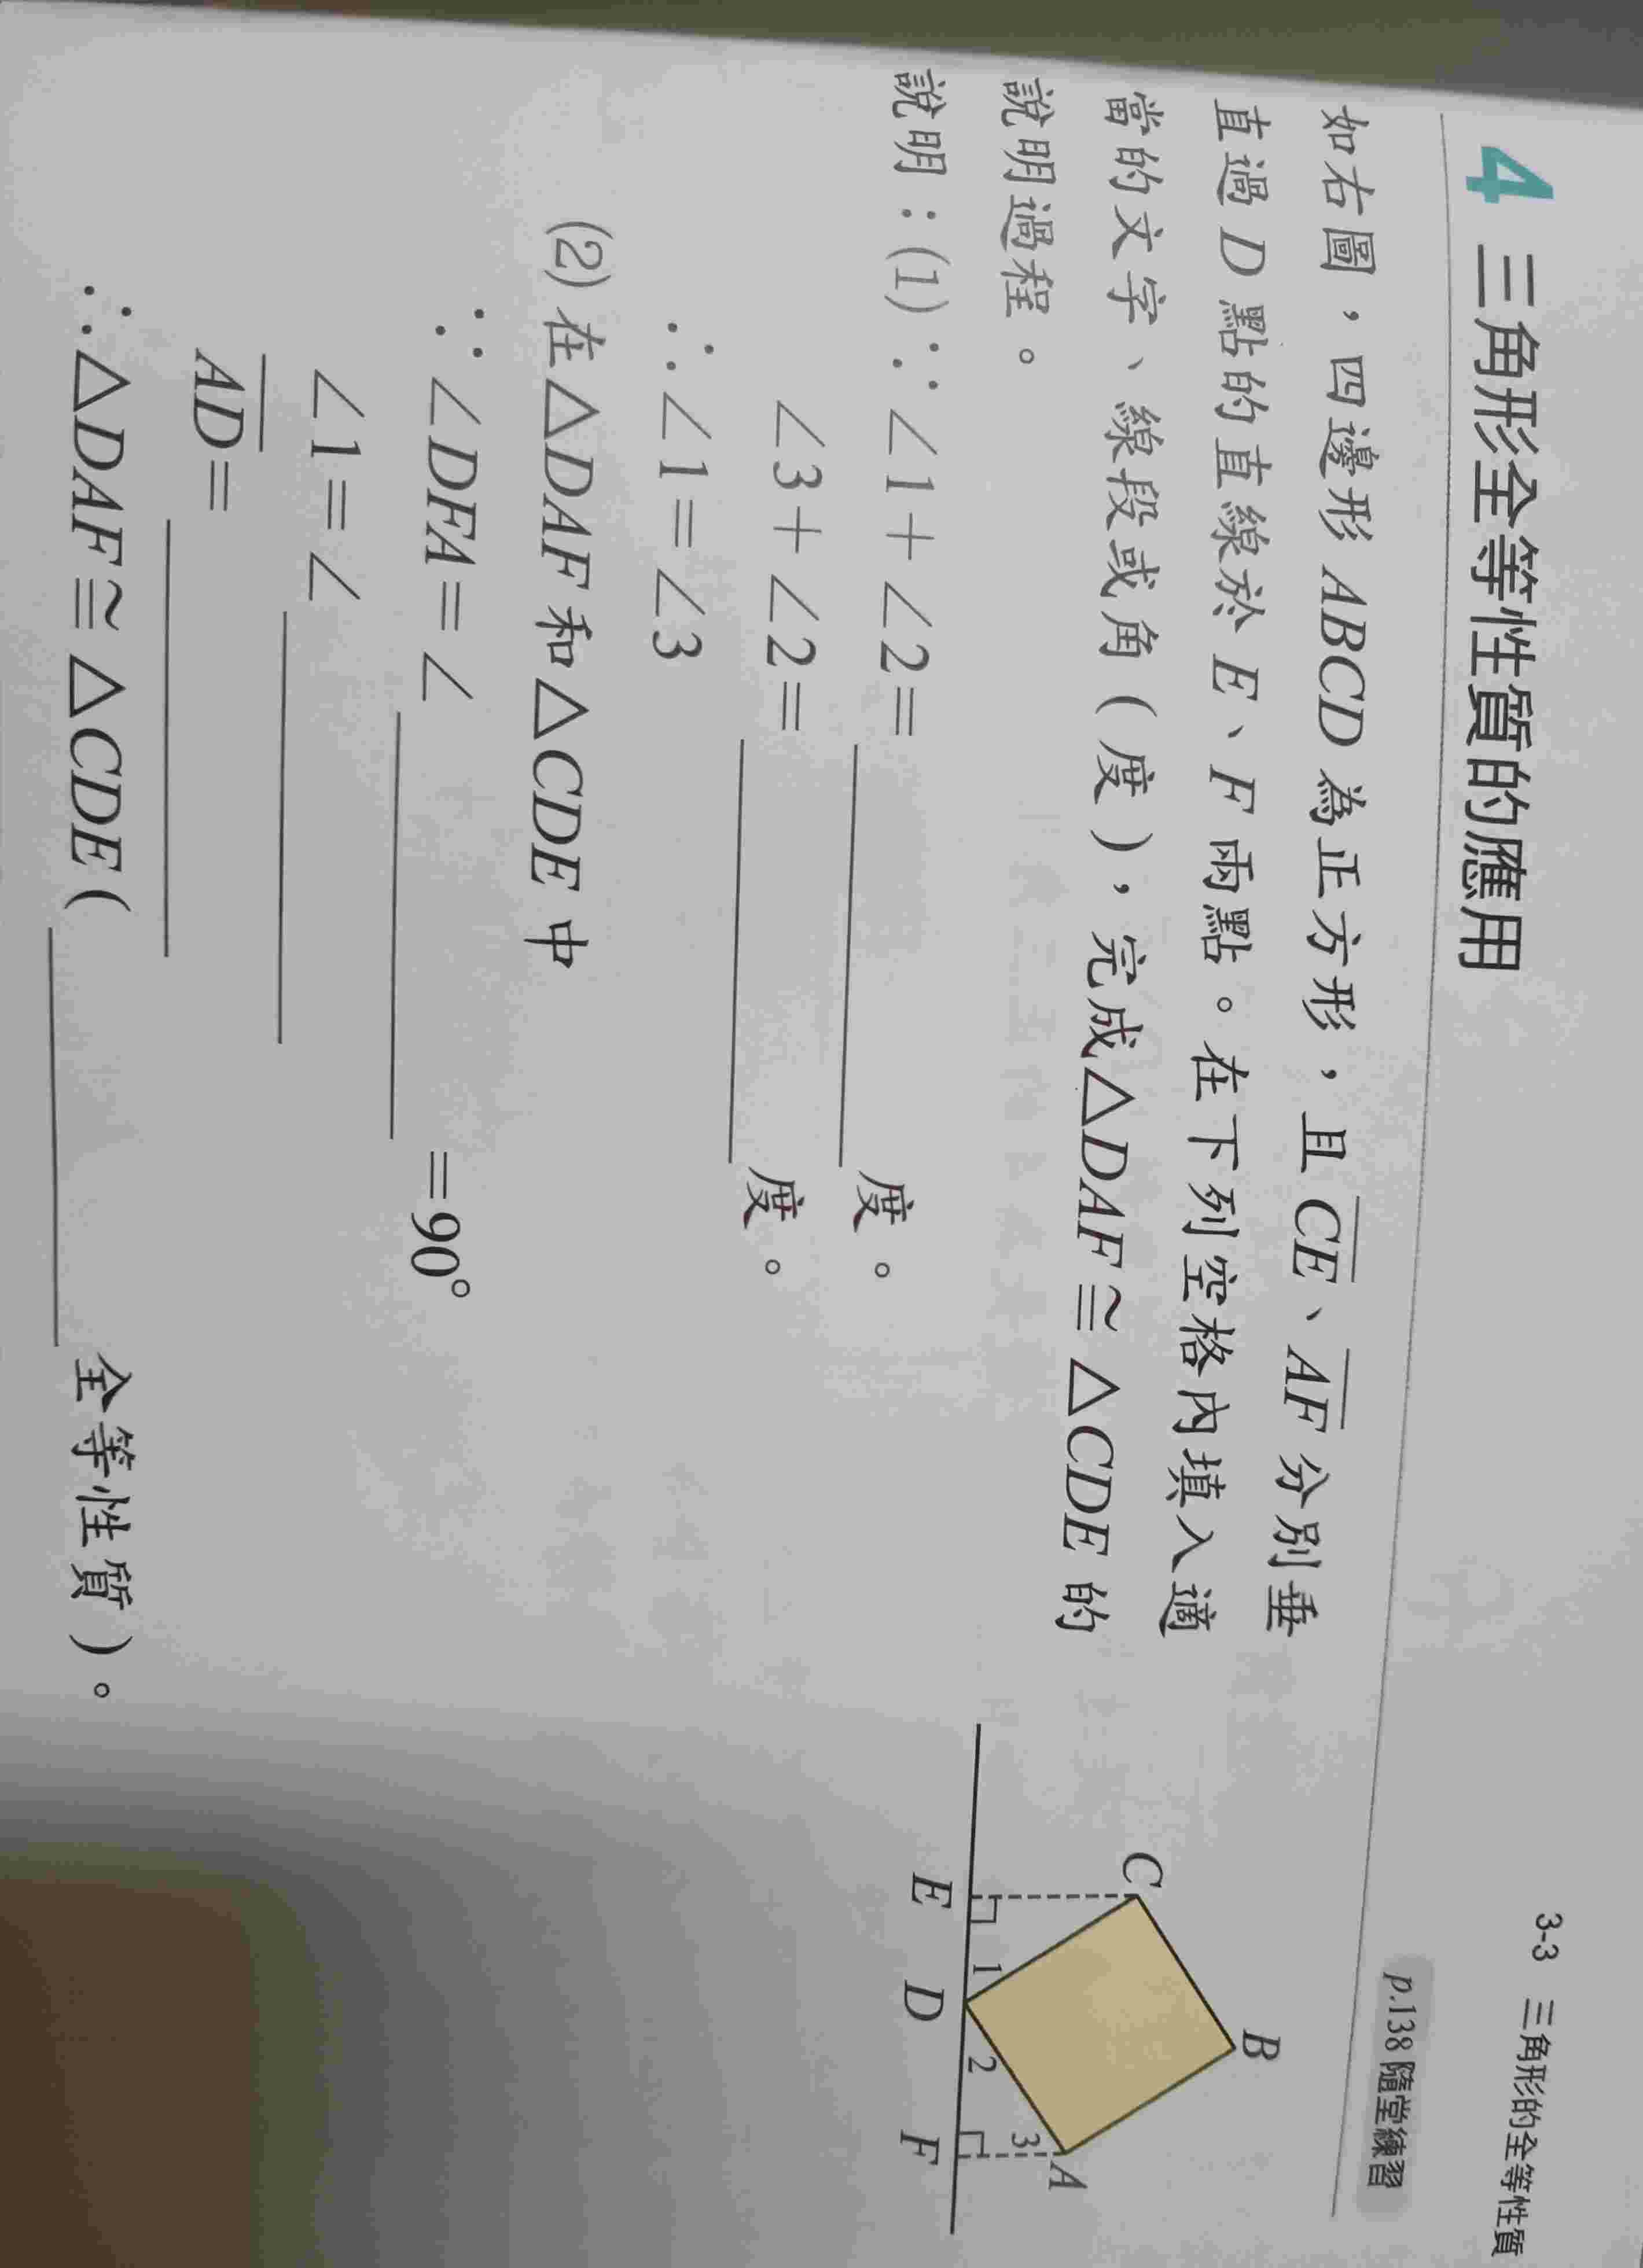 3-3 三角形的全等性質
4 三角形全等性質的應用
p.138 隨堂練習
如右圖，四邊形 ABCD 為正方形，且 CE、AF 分別垂
直過 D 點的直線於 E、F 兩點。在下列空格內填入適
當的文字、線段或角（度），完成△DAF≅△CDE 的
說明過程。
說明：(1) ∵∠1＋∠2＝ 度。
∠3＋∠2＝ 度。
∴∠1＝∠3
(2) 在△DAF 和△CDE 中
∵∠DFA＝∠ ＝90°
∠1＝∠
AD＝
∴△DAF≅△CDE（ 全等性質）。
B
C
A
3
1
2
E
D
F